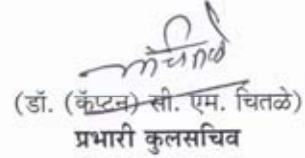 (डॉ. (कॅप्टन) सी. एम. चितळे)
प्रभारी कुलसचिव